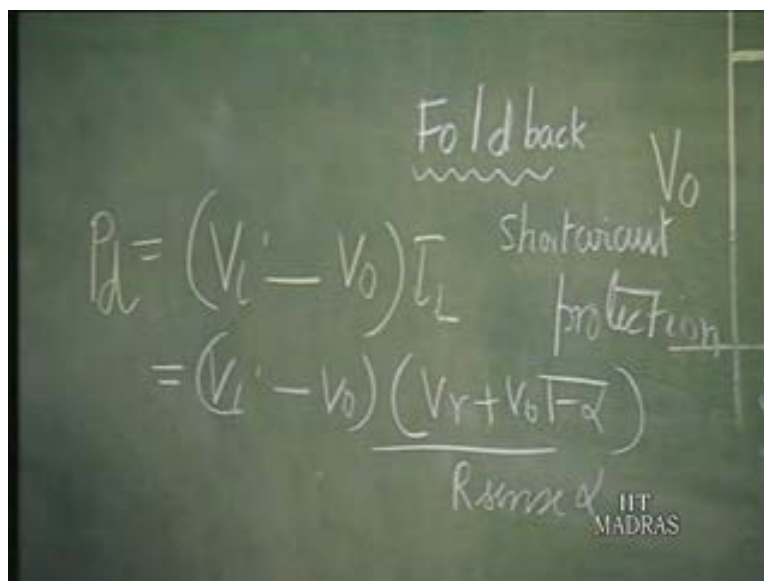 Foldback
V₀
Short circuit
protection
P_d = (V_i − V₀) I_L
= (V_i − V₀) (V_r + V₀ \overline{1−α})
R sense α
IIT
MADRAS